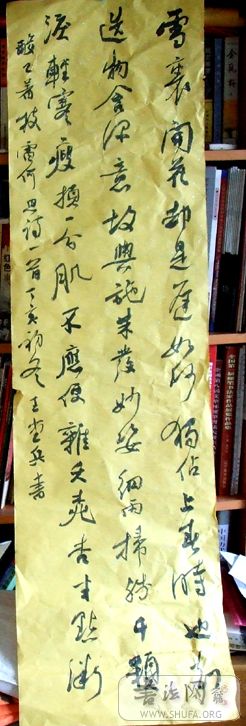 雪裏開花却是遲如何獨佔上春時也知
造物含深意故與施朱發妙姿細雨殘千顆
淚輕寒瘦損一分肌不應便雜夭桃杏半點微
酸已著枝 詩一首 丁亥初冬 王兵書
金瓶梅
書法网
WWW.SHUFA.ORG